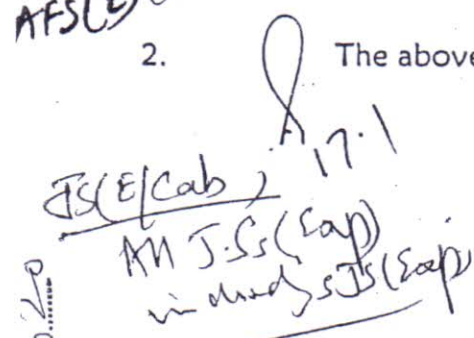 AFS(E)
2. The above
17.1
JS(E/Cab)
All J.Ss(Exp)
JS(Exp)